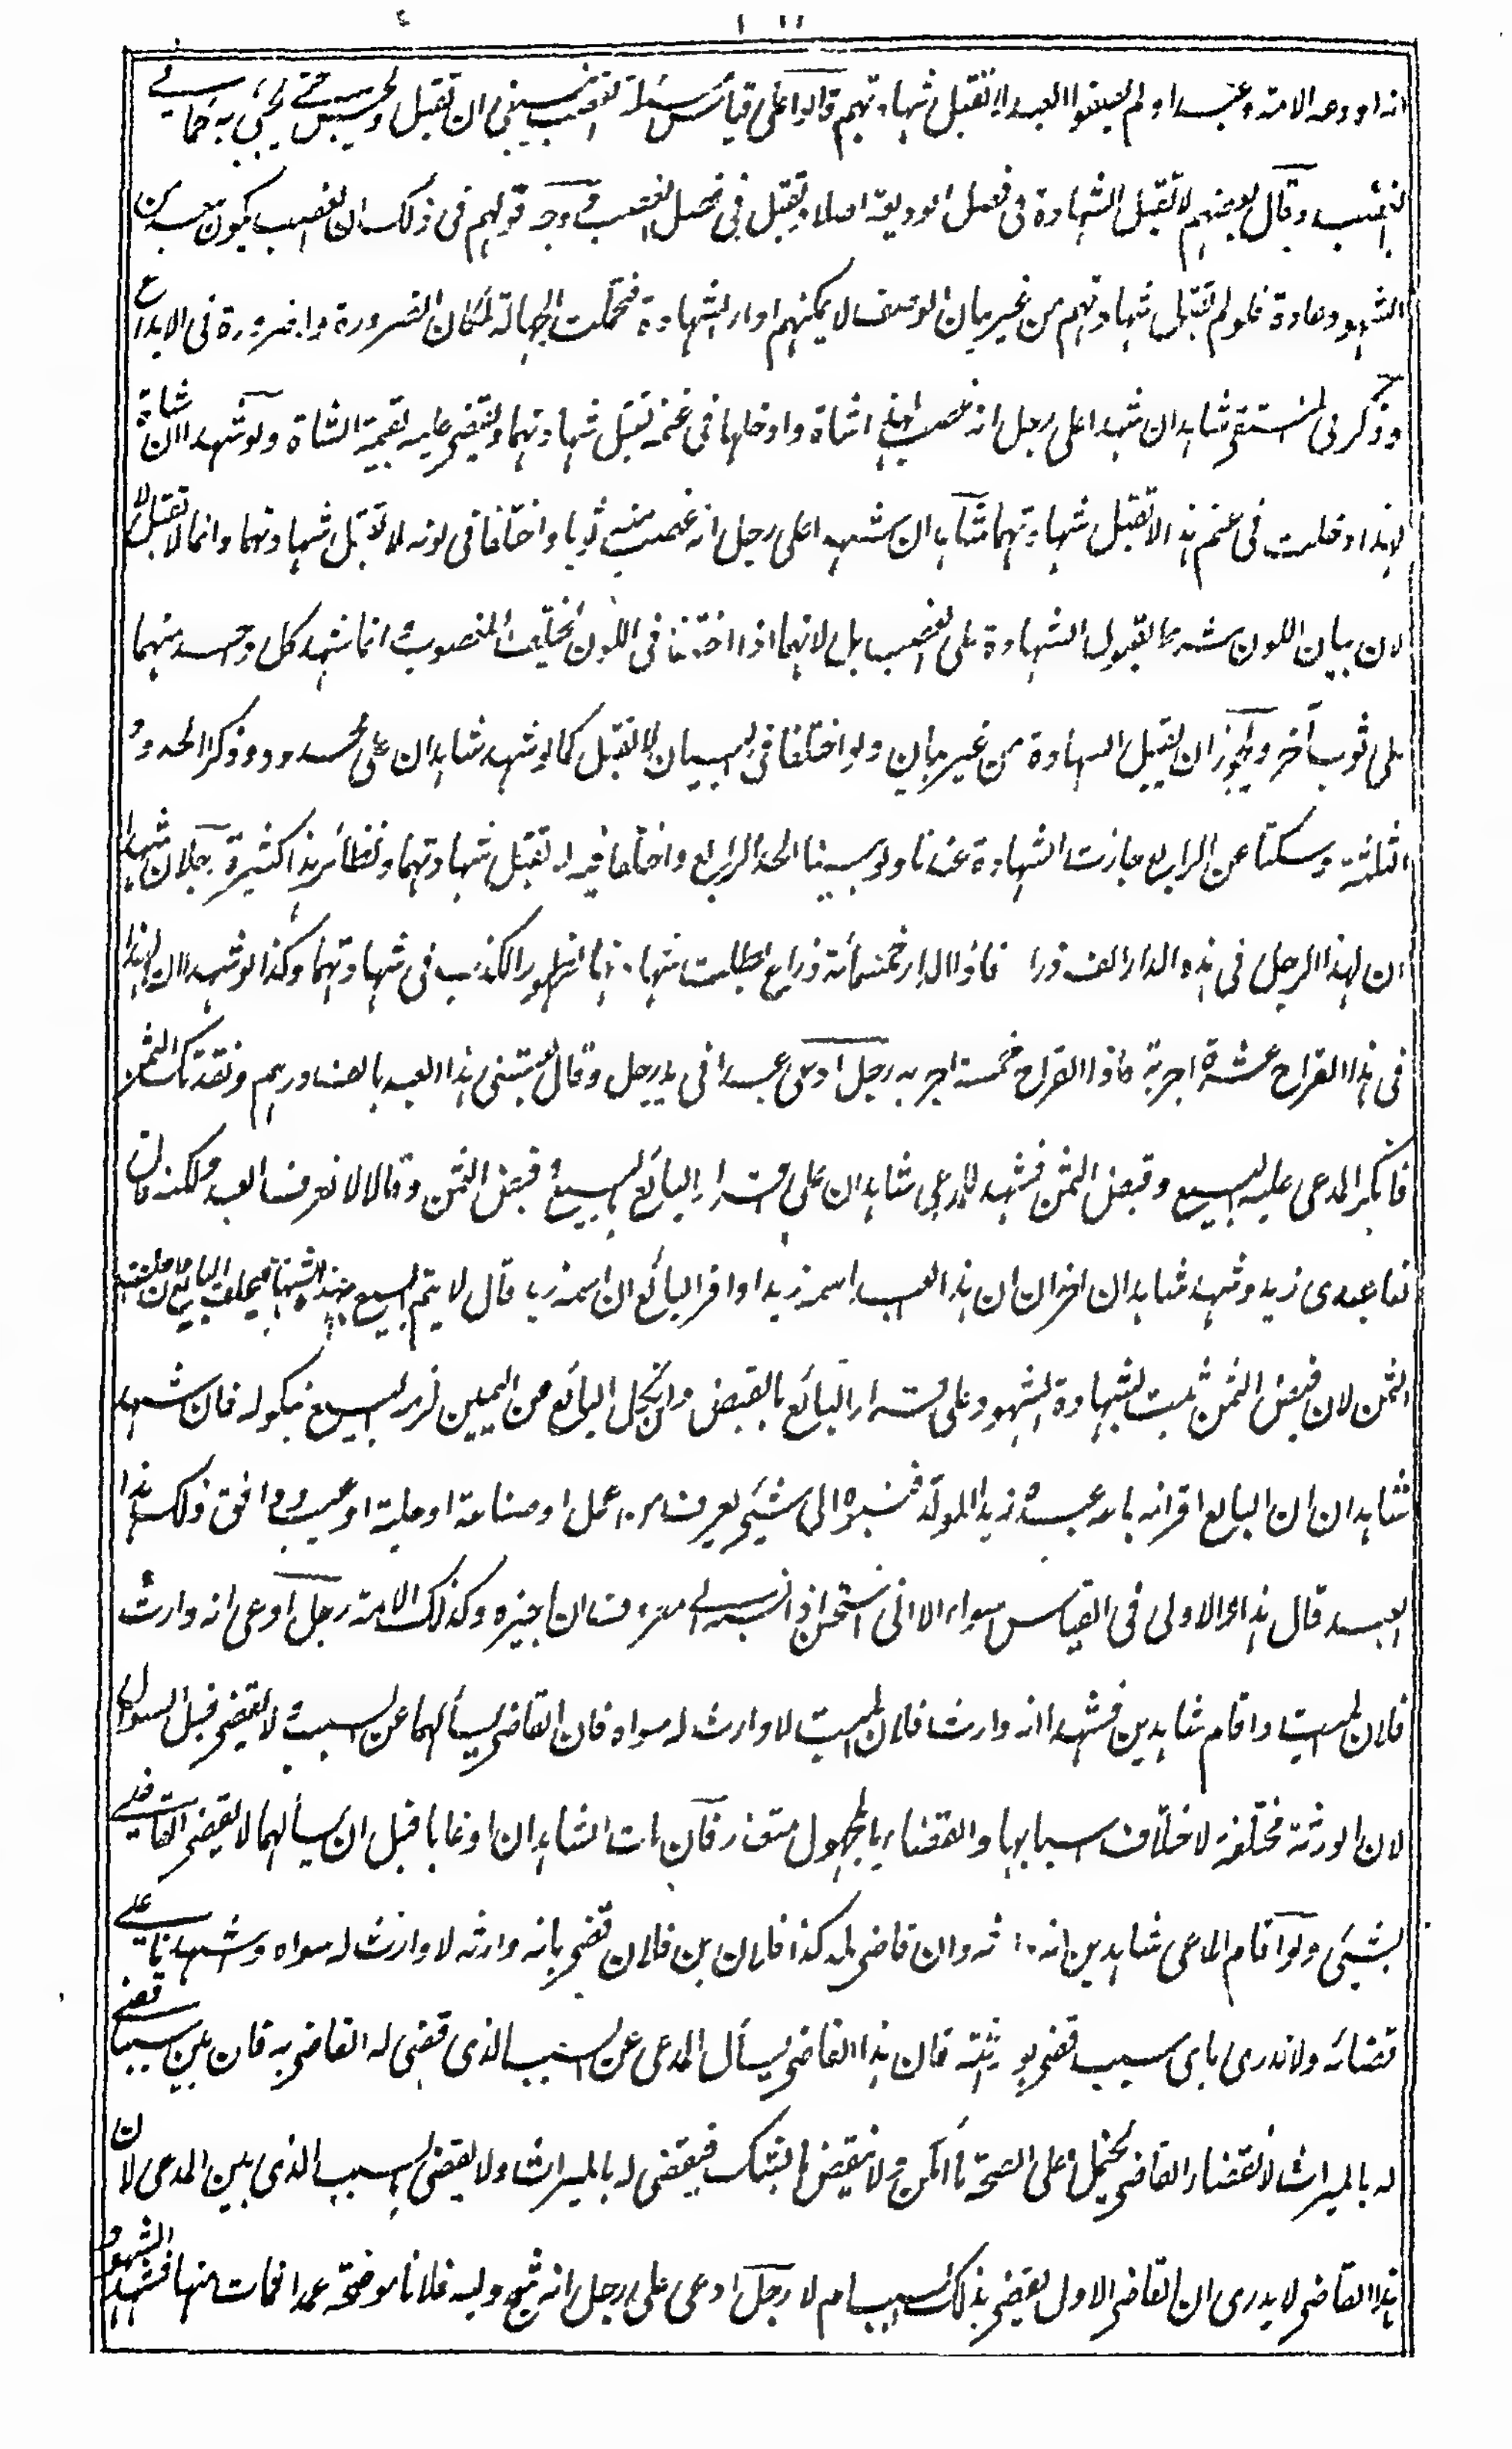 انه اودعه الامة وعبدا ولم يصفوا العبد لا تقبل شهادتهم قالوا على قياس مسئلة الغصب ينبغي ان تقبل ويحبس حتى يجئ به كما في
الغصب وقال بعضهم لا تقبل الشهادة فى فصل الوديعة اصلا وتقبل فى فصل الغصب ووجه قولهم فى ذلك ان الغصب يكون من
الشهود عادة فلو لم تقبل شهادتهم من غير بيان الوصف لا يمكنهم اداء الشهادة فتحملت الجهالة لمكان الضرورة ولا ضرورة فى الايداع
وذكر فى المنتقى شاهدان شهدا على رجل انه غصب هذا شاة وادخلها فى غنمه تقبل شهادتهما ويقضى عليه بقيمة الشاة ولو شهدا ان شاة
لهذا دخلت فى غنم هذا لا تقبل شهادتهما شاهدان شهدا على رجل انه غصب منه ثوبا واختلفا فى لونه لا تقبل شهادتهما وانما لا تقبل لا
لان بيان اللون شرط لقبول الشهادة على الغصب بل لانهما اذا اختلفا فى اللون يختلف المغصوب انما شهد كل واحد منهما
على ثوب آخر ويجوز ان تقبل الشهادة من غير بيان ولو اختلفا فى البيان لا تقبل كما لو شهد شاهدان على محدود وذكرا الحدود
الثلثة وسكتا عن الرابع جازت الشهادة عندنا ولو بينا الحد الرابع واختلفا فيه لا تقبل شهادتهما ونظائر هذا كثيرة رجلان شهدا
ان لهذا الرجل فى هذه الدار الف ذراع فاذا الدار خمسمائة ذراع بطلت شهادتهما لظهور الكذب فى شهادتهما وكذا لو شهدا ان لهذا
فى هذا القراح عشرة اجربة فاذا القراح خمسة اجربة رجل ادعى عبدا فى يد رجل وقال بعتنى هذا العبد بالف درهم ونقدتك الثمن
فانكر المدعى عليه البيع وقبض الثمن فشهد للمدعى شاهدان على اقرار البائع بالبيع وقبض الثمن وقالا لا نعرف العبد ولكنه قال
لنا عبدى زيد وشهد شاهدان آخران ان هذا العبد اسمه زيد او اقر البائع ان اسمه زيد قال لا يتم البيع بهذه الشهادة ويحلف البائع
الثمن لان قبض الثمن ثبت بشهادة الشهود على اقرار البائع بالقبض وان نكل البائع عن اليمين لزمه البيع بنكوله فان شهد
شاهدان ان البائع اقر انه باعه عبده زيد المولد فنسبوه الى شئ يعرف من عمل او صناعة او حلية او عيب ووافق ذلك هذا
العبد قال هذا والاولى فى القياس سواء الا انى استحسن اذا نسبه الى معروف ان اجيزه وكذلك الامة رجل ادعى انه وارث
فلان الميت واقام شاهدين فشهدا انه وارث فلان الميت لا وارث له سواه فان القاضى يسألهما عن السبب ولا يقضى قبل السوال
لان الورثة مختلفة لاختلاف اسبابها والقضاء بالمجهول متعذر فان مات الشاهدان او غابا قبل ان يسألهما لا يقضى القاضى
بشئ ولو اقام المدعى شاهدين انه وارثه وان قاضى بلد كذا فلان بن فلان قضى بانه وارثه لا وارث له سواه وشهدنا على
قضائه ولا ندرى باى سبب قضى بوراثته فان هذا القاضى يسأل المدعى عن السبب الذى قضى له القاضى به فان بين سببا قضى
له بالميراث لان قضاء القاضى يحمل على الصحة ما امكن ولا ينقض بالشك فيقضى له بالميراث ولا يقضى بالسبب الذى بين المدعى لان
هذا القاضى لا يدرى ان القاضى الاول يقضى بذلك السبب ام لا رجل ادعى على رجل انه شج وليه فلانا موضحة عمدا فمات منها فشهد الشهود